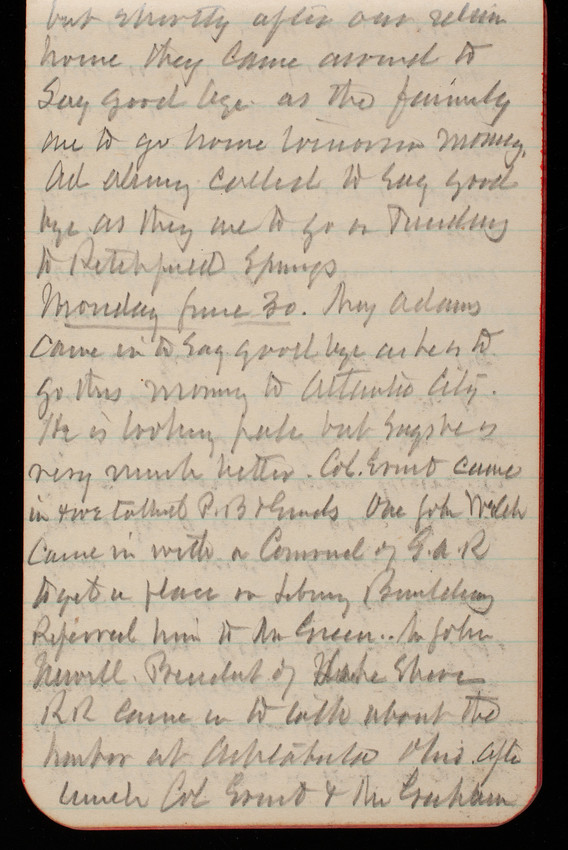 but shortly after our return
home they came around to
Say good bye as the family
are to go home tomorrow morning.
Ad called to say good
bye as they are to go on Tuesday
to Richfield Springs
Monday June 30. Adams
came in to say good bye as he is to
go this morning to Atlantic City.
He is looking pale but says he is
very much better. Col. Ernst came
in & we talked P. B & Grounds One John Welch
came in with a Comrad of G.A.R
to get a place on Library Building
Referred him to Mr Green.. Mr John
Newell President of Lake Shore
RR came in to talk about the
harbor at Ashtabula Ohio. After
lunch Col Ernst & Mr